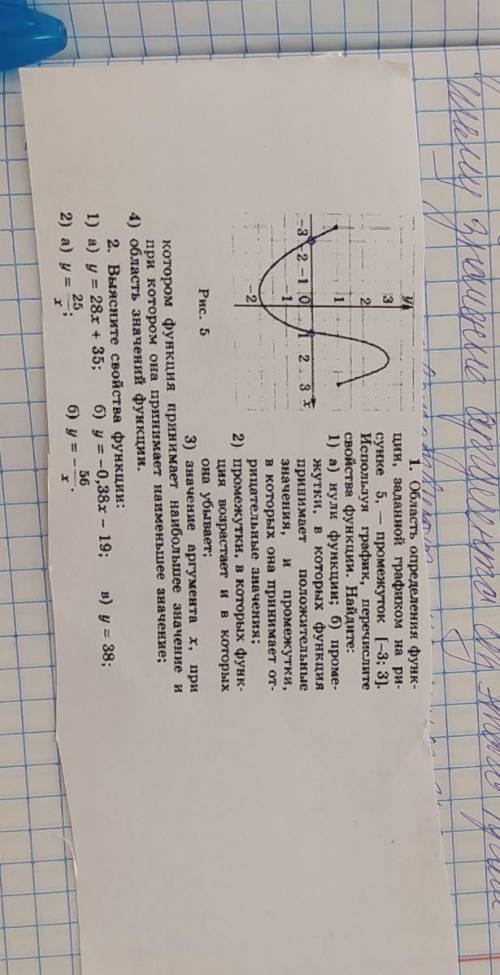 1. Область определения функ-
ции, заданной графиком на ри-
сунке 5, — промежуток [−3; 3].
Используя график, перечислите
свойства функции. Найдите:
1) а) нули функции; б) проме-
жутки, в которых функция
принимает положительные
значения, и промежутки,
в которых она принимает от-
рицательные значения;
2) промежутки, в которых функ-
ция возрастает и в которых
она убывает;
3) значение аргумента x, при
котором функция принимает наибольшее значение и
при котором она принимает наименьшее значение;
4) область значений функции.
y
3
2
1
−3 −2 −1 0 1 2 3 x
−1
−2
Рис. 5
2. Выясните свойства функции:
1) а) y = 28x + 35; б) y = −0,38x − 19; в) y = 38;
2) а) y = 25/x; б) y = −56/x.
значение аргумента